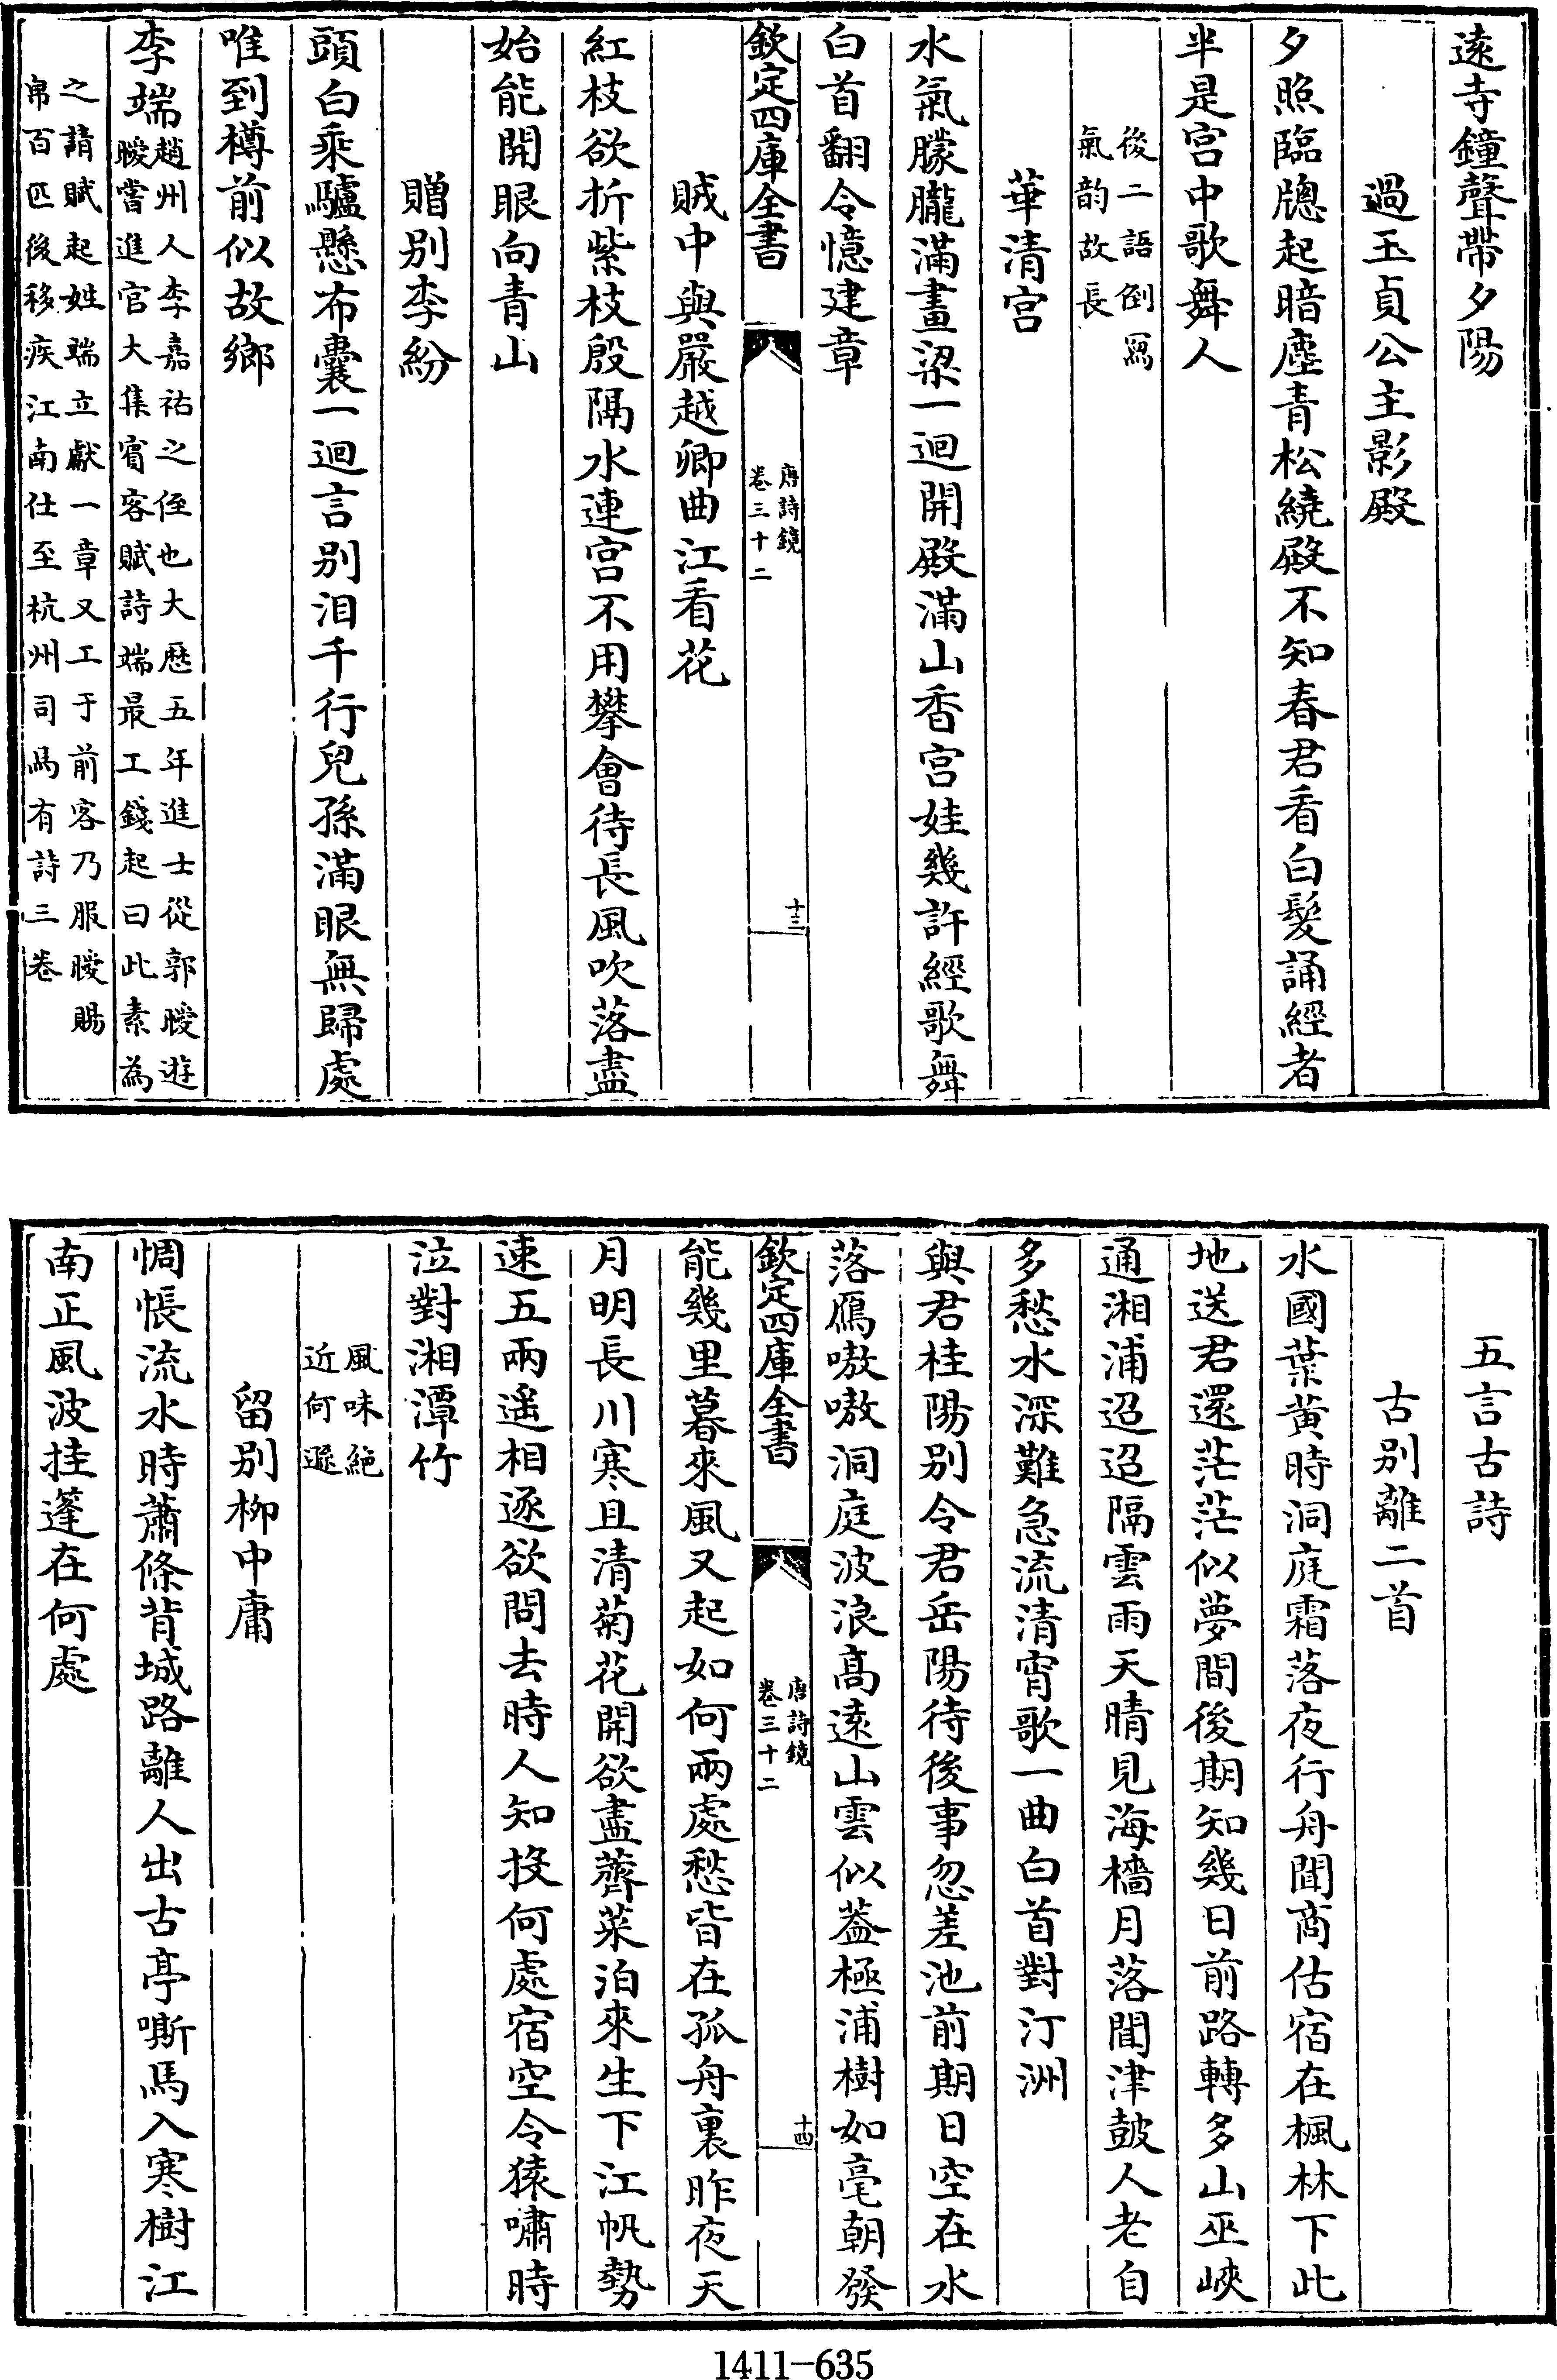 逺寺鐘聲帶夕陽
過玉貞公主影殿
夕照臨牕起暗塵青松繞殿不知春君看白髮誦經者
半是宫中歌舞人
後二語倒寫
氣韵故長
華清宫
水氣朦朧滿畫梁一迴開殿滿山香宫娃幾許經歌舞
白首翻令憶建章
欽定四庫全書
唐詩鏡
卷三十二
十三
賊中與嚴越卿曲江看花
紅枝欲折紫枝殷隔水連宫不用攀會待長風吹落盡
始能開眼向青山
贈别李紛
頭白乘驢懸布囊一迴言别泪千行兒孫滿眼無歸處
唯到樽前似故鄉
李端趙州人李嘉祐之侄也大歴五年進士從郭曖遊
曖嘗進官大集賓客賦詩端最工錢起曰此素為
之請賦起姓端立獻一章又工于前客乃服曖賜
帛百匹後移疾江南仕至杭州司馬有詩三卷
五言古詩
古别離二首
水國葉黄時洞庭霜落夜行舟聞商估宿在楓林下此
地送君還茫茫似夢間後期知幾日前路轉多山巫峽
通湘浦迢迢隔雲雨天晴見海檣月落聞津鼓人老自
多愁水深難急流清宵歌一曲白首對汀洲
與君桂陽别令君岳陽待後事忽差池前期日空在水
落鴈嗷嗷洞庭波浪髙逺山雲似葢極浦樹如毫朝發
欽定四庫全書
唐詩鏡
卷三十二
十四
能幾里暮來風又起如何兩處愁皆在孤舟裏昨夜天
月明長川寒且清菊花開欲盡薺菜泊來生下江帆勢
速五兩遥相逐欲問去時人知投何處宿空令猿嘯時
泣對湘潭竹
風味絶
近何遜
留别柳中庸
惆悵流水時蕭條背城路離人出古亭嘶馬入寒樹江
南正風波挂蓬在何處
1411-635